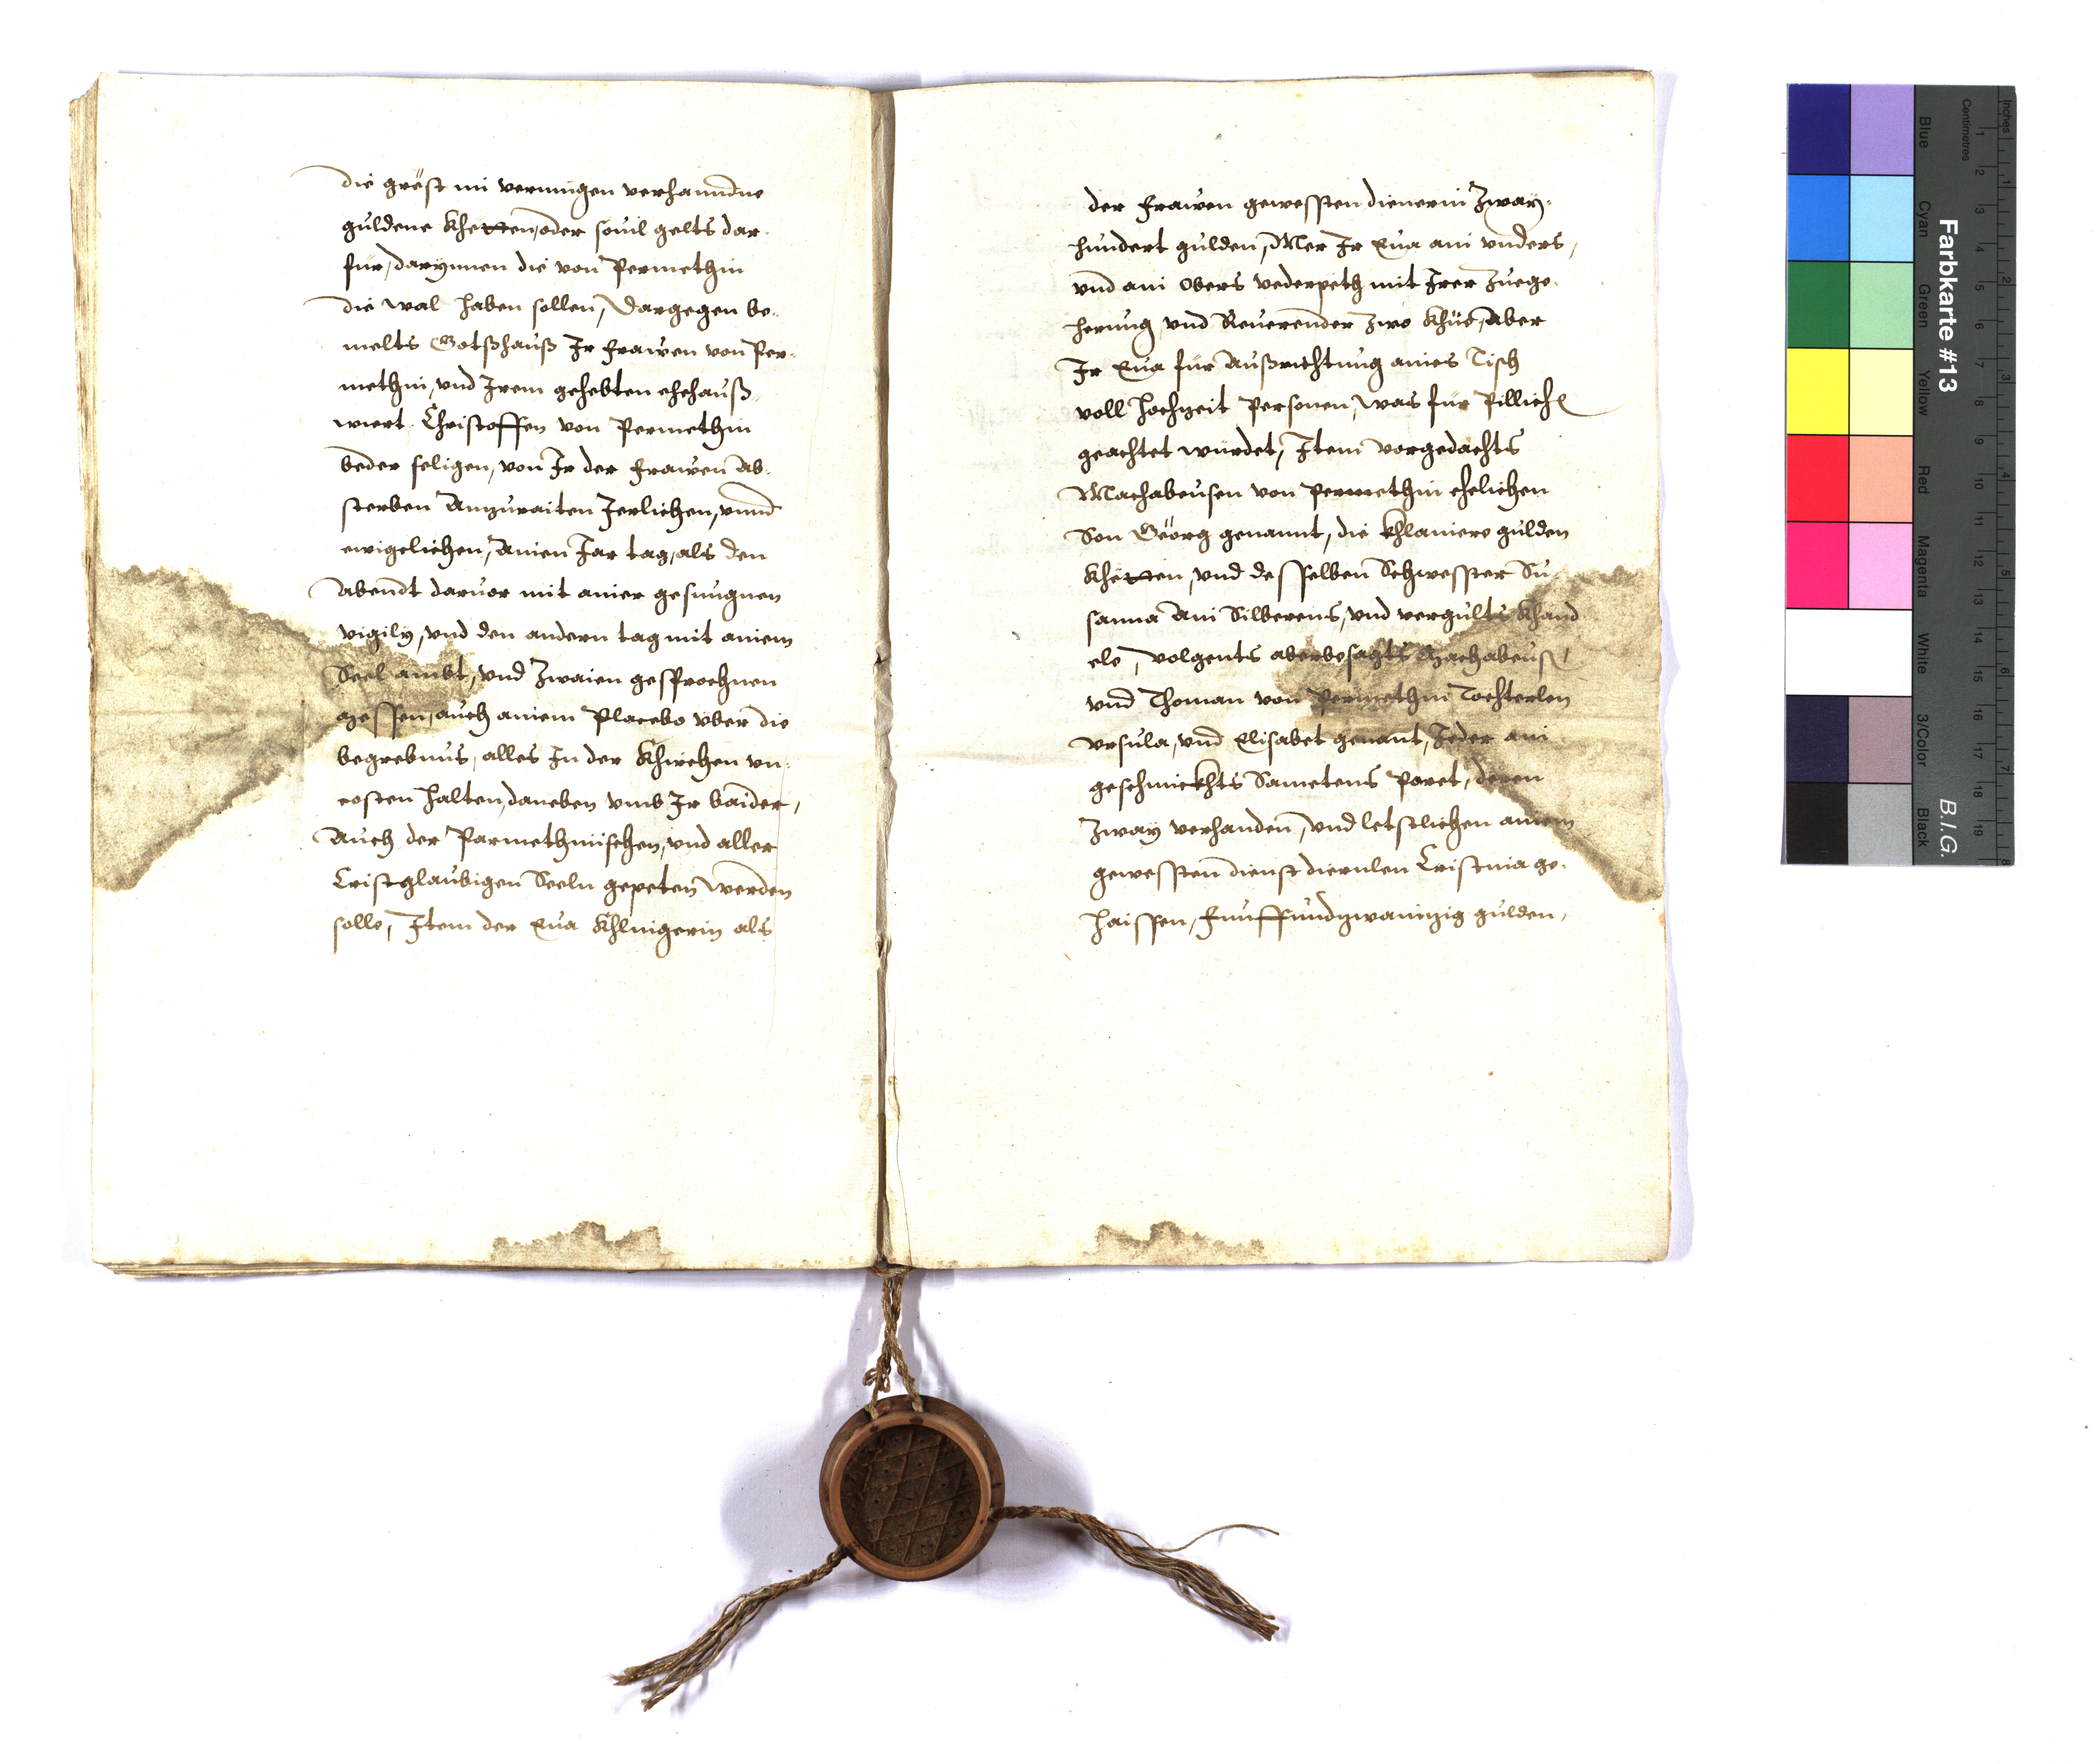 die gröst im vermügen verhanndne
guldene Khetten, oder souil gelts dar-
für, darynnen die von Permethin
die wal haben sollen, Dargegen be-
melts Gotßhauß Ir frawen von Per-
methin, vnd Irem gehebten ehehauß-
wiert Christoffen von Permethin
beder seligen, von Ir der frawen ab-
sterben Anzuraiten Jerlichen, vnnd
ewigclichen, Ainen Jar tag, als den
Abendt daruor mit ainer gesungnen
vigily, vnd den andern tag mit ainem
Seel ambt, vnd Zwaien gesprochnen
Messen, auch ainem Placebo vber die
begrebnus, alles In der Khirchen vn-
costen halten, daneben vmb Ir baider,
Auch der Parmethinischen, vnd aller
Cristglaubigen Seeln gepeten werden
solle, Item der Eua Khlnigerin als
der frawen gewessten dienerin Zway-
hundert gulden, Mer Ir Eua ain vnders,
vnd ain obers vederpeth mit Irer Zuege-
herung vnd Reuerender zwo Khüe, Aber
Ir Eua für Außrichtung aines Tisch
voll hochzeit Personen, was für Pillich
geachtet würdet, Item vorgedachts
Machabeusen von Permethin ehelichen
Son Geörg genannt, die khlainere gulden
Khetten, vnd desselben Schwesster Su-
sanna Ain Silberens, vnd vergults Khand
ele, volgents aberbesagts Machabeus,
vnd Thoman von Permethin Tochterlen
Vrsula, vnd Elisabet genant, Jeder ain
geschmuckhts Sametens Paret, deren
Zway verhanden, vnd letstlichen ainem
gewessten dienst diernlen Cristina ge-
haissen, funffundzwainzig gulden,
Farbkarte #13
B.I.G.
Inches
Centimetres
Blue
Cyan
Green
Yellow
Red
Magenta
White
3/Color
Black
1 2 3 4 5 6 7 8 9 10 11 12 13 14 15 16 17 18 19
1 2 3 4 5 6 7 8